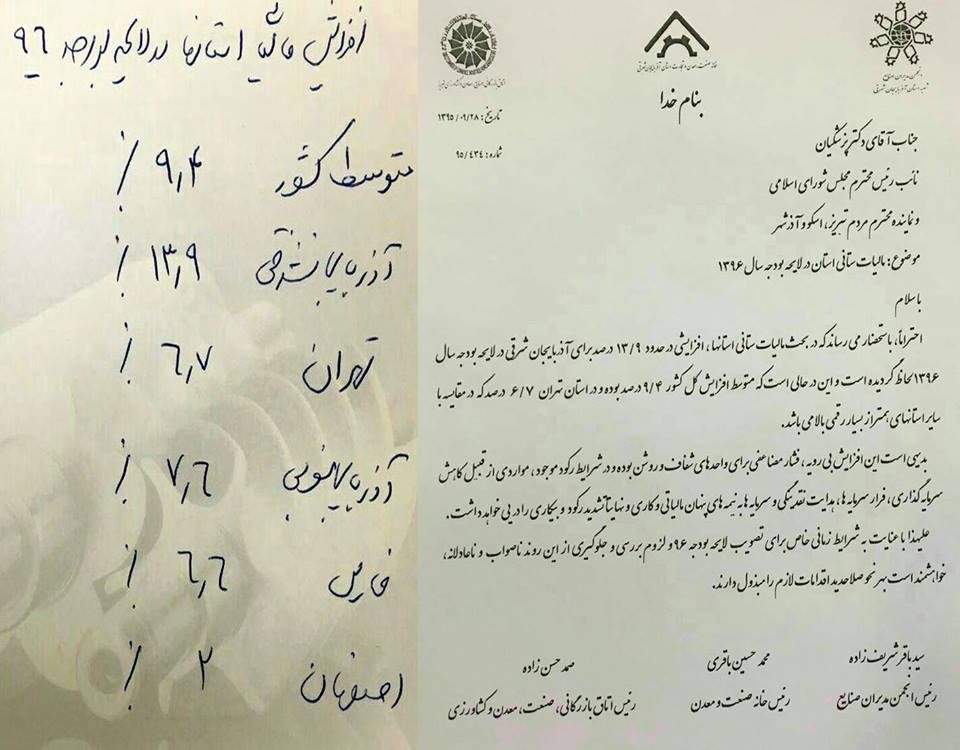 انجمن مدیران صنایع
خانه صنعت، معدن و تجارت استان آذربایجان شرقی
بنام خدا
تاریخ: ۱۳۹۵/۰۹/۲۸
شماره: ۹۵/۴۳۴
جناب آقای دکتر پزشکیان
نائب رئیس محترم مجلس شورای اسلامی
و نماینده محترم مردم تبریز، اسکو و آذرشهر
موضوع: مالیات ستانی استان در لایحه بودجه سال ۱۳۹۶
با سلام
احتراماً، باستحضار می رساند که در بحث مالیات ستانی استانها، افزایشی در حدود ۱۳/۹ درصد برای آذربایجان شرقی در لایحه بودجه سال
۱۳۹۶ لحاظ گردیده است و این در حالی است که متوسط افزایش کل کشور ۹/۴ درصد بوده و در استان تهران ۶/۷ درصد که در مقایسه با
سایر استانهای همتراز بسیار رقمی بالا می باشد.
بدیهی است این افزایش بی رویه، فشار مضاعفی برای واحدهای شفاف و روشن بوده و در شرایط رکود موجود، مواردی از قبیل کاهش
سرمایه گذاری، فرار سرمایه ها، هدایت نقدینگی و سرمایه ها به نیمه های پنهان مالیاتی و کاری و نهایتاً تشدید رکود و بیکاری را در پی خواهد داشت.
علیهذا با عنایت به شرایط زمانی خاص برای تصویب لایحه بودجه ۹۶ و لزوم بررسی و جلوگیری از این روند ناصواب و ناعادلانه،
خواهشمند است بهر نحو صلاحدید اقدامات لازم را مبذول دارند.
سید باقر شریف زاده
رئیس انجمن مدیران صنایع
محمد حسین باقری
رئیس خانه صنعت و معدن
صمد حسن زاده
رئیس اتاق بازرگانی، صنعت، معدن و کشاورزی
افزایش مالیات استانها در لایحه بودجه ۹۶
متوسط کشور ۹٫۴ ٪
آذربایجانشرقی ۱۳٫۹ ٪
تهران ۶٫۷ ٪
آذربایجانغربی ۷٫۶ ٪
فارس ۶٫۶ ٪
اصفهان ۲ ٪